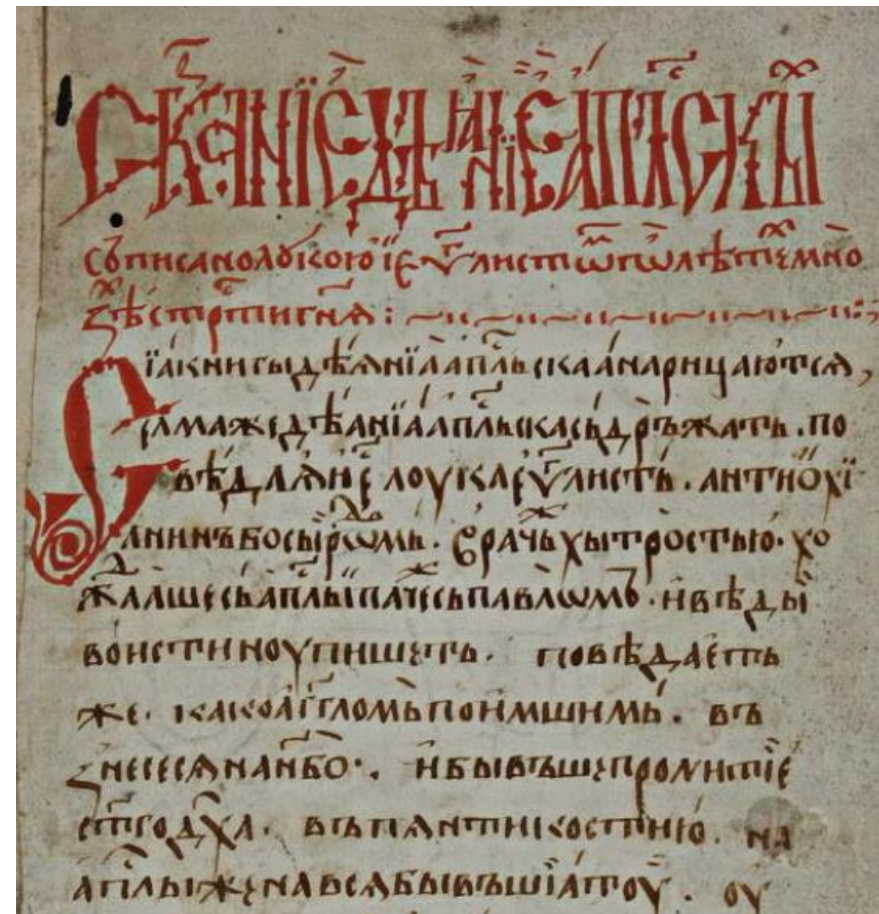 Сказаніе дѣаніе апⷭ҇лскыⷯ
съписано лꙋкою і еѵⷢ҇листоⷨ ѿ по лѣтѣⷯ мно
ѕѣ стрⷭ҇ти гнⷭ҇ѧ :
Сїа книгы дѣѧнїа апⷭ҇льскаа нарицаютсѧ,
сама же дѣанїа апⷭ҇льска съдръжать . по
вѣдаѧ не лоука еѵⷢ҇листъ . антиохї
анинъ бо сыи роⷣмь . врачьⷤ хытростью . хо
жⷣааше съ апⷭ҇лы паⷱ҇е съ павлѡмъ . и вѣды
воистиноу пишеть . повѣдаеть
же . како аг҃гломь поимшимь . въ
знесесѧ на нб҃о . и бывъше пролитїе
ст҃го дх҃а . въ пѧнтикостию . на
апⷭ҇лы же на всѧ бывъшїа тоу . оу